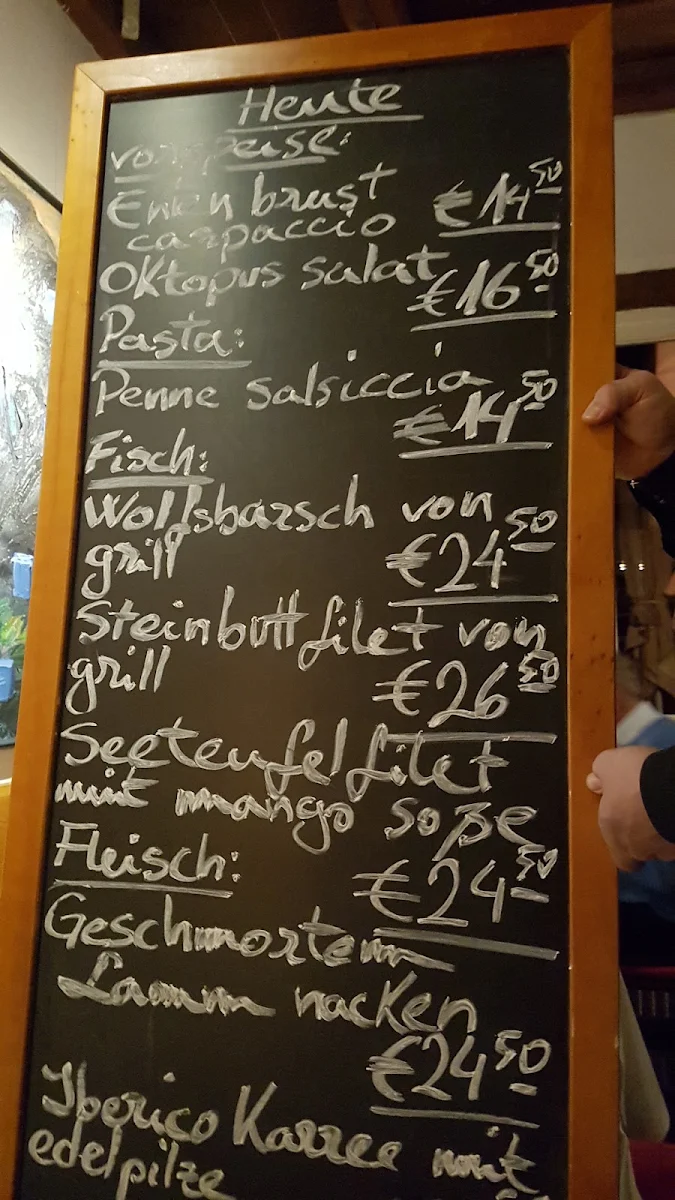 Heute
vorspeise:
Enten brust
carpaccio € 14 50
Oktopus salat
€ 16 50
Pasta:
Penne salsiccia
€ 14 50
Fisch:
Wolfsbarsch von
grill € 24 50
Steinbutt filet von
grill € 26 50
Seeteufel filet
mit mango soße
Fleisch: € 24 50
Geschmortem
Lamm nacken
€ 24 50
Iberico Karree mit
edelpilze